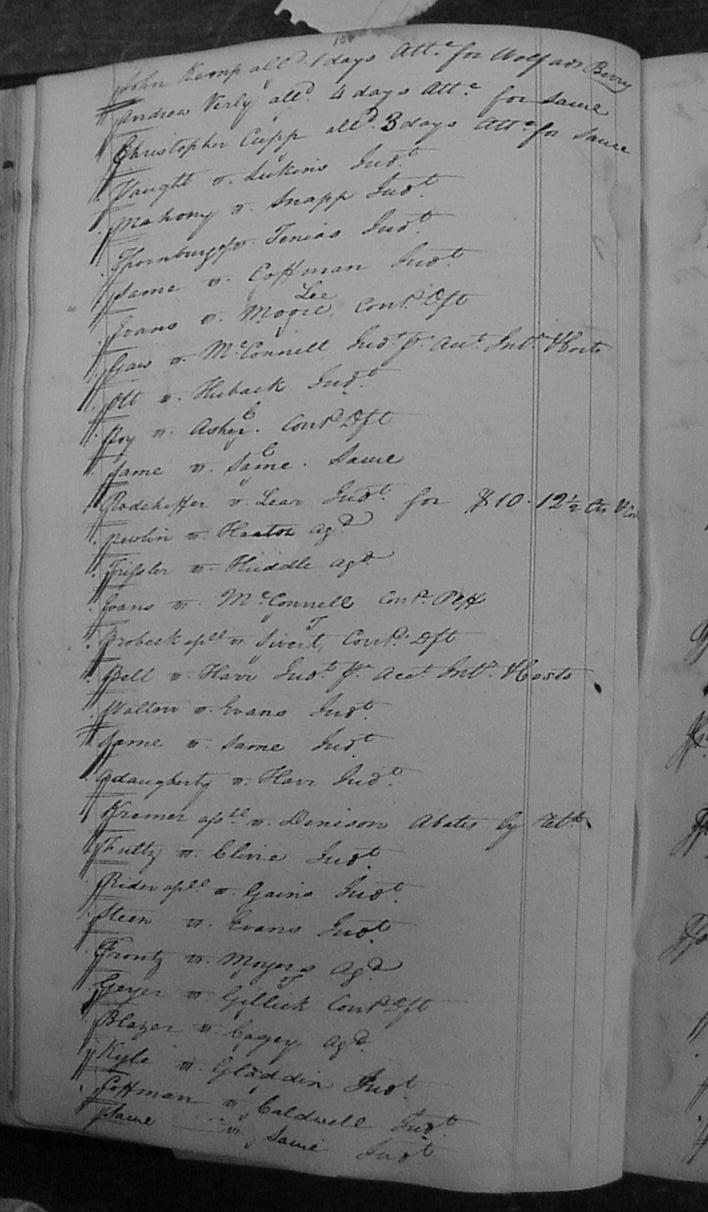 John Kemp alld. 1 days Atte. for Wolf ads Berry
Andrew Verly alld. 4 days Atte. for Same
Christopher Cupp alld. 3 days Atte. for Same
Vaught v. Lukins Judt.
Mahony v. Snapp Judt.
Thornburg v. Tenias Judt.
Same v. Coffman Judt.
Lee
Evans v. Cont. Dft
Gaw v. McConnell Judt. fr. Acct. Intt. & Costs
Ott v. Huback Judt.
Roy v. Asher. Cont. Dft
Same v. Same. Same
Rodeheffer v. Lear Judt. for $10.12½ Cts
Newlin v. Heaton Agd.
Trissler v. Huddle Agd.
Evans v. McConnell Cont. Plff
Brobeck aplt v. Sivert, Cont. Dft
Bell v. Harr Judt. fr. Acct. Intt. & Costs
Walton v. Evans Judt.
Same v. Same Judt.
Odaugherty v. Harr Judt.
Kremer aplt v. Denison Abates by
Fultz v. Cline Judt.
Rider aplt v. Gains Judt.
Steen v. Evans Judt.
Frontz v. Moyers Agd.
Geyer v. Gillick Cont. Dft
Blazer v. Cagey Agd.
Kyle v. Gladdin Judt.
Coffman v. Caldwell Judt.
Same v. Same Judt